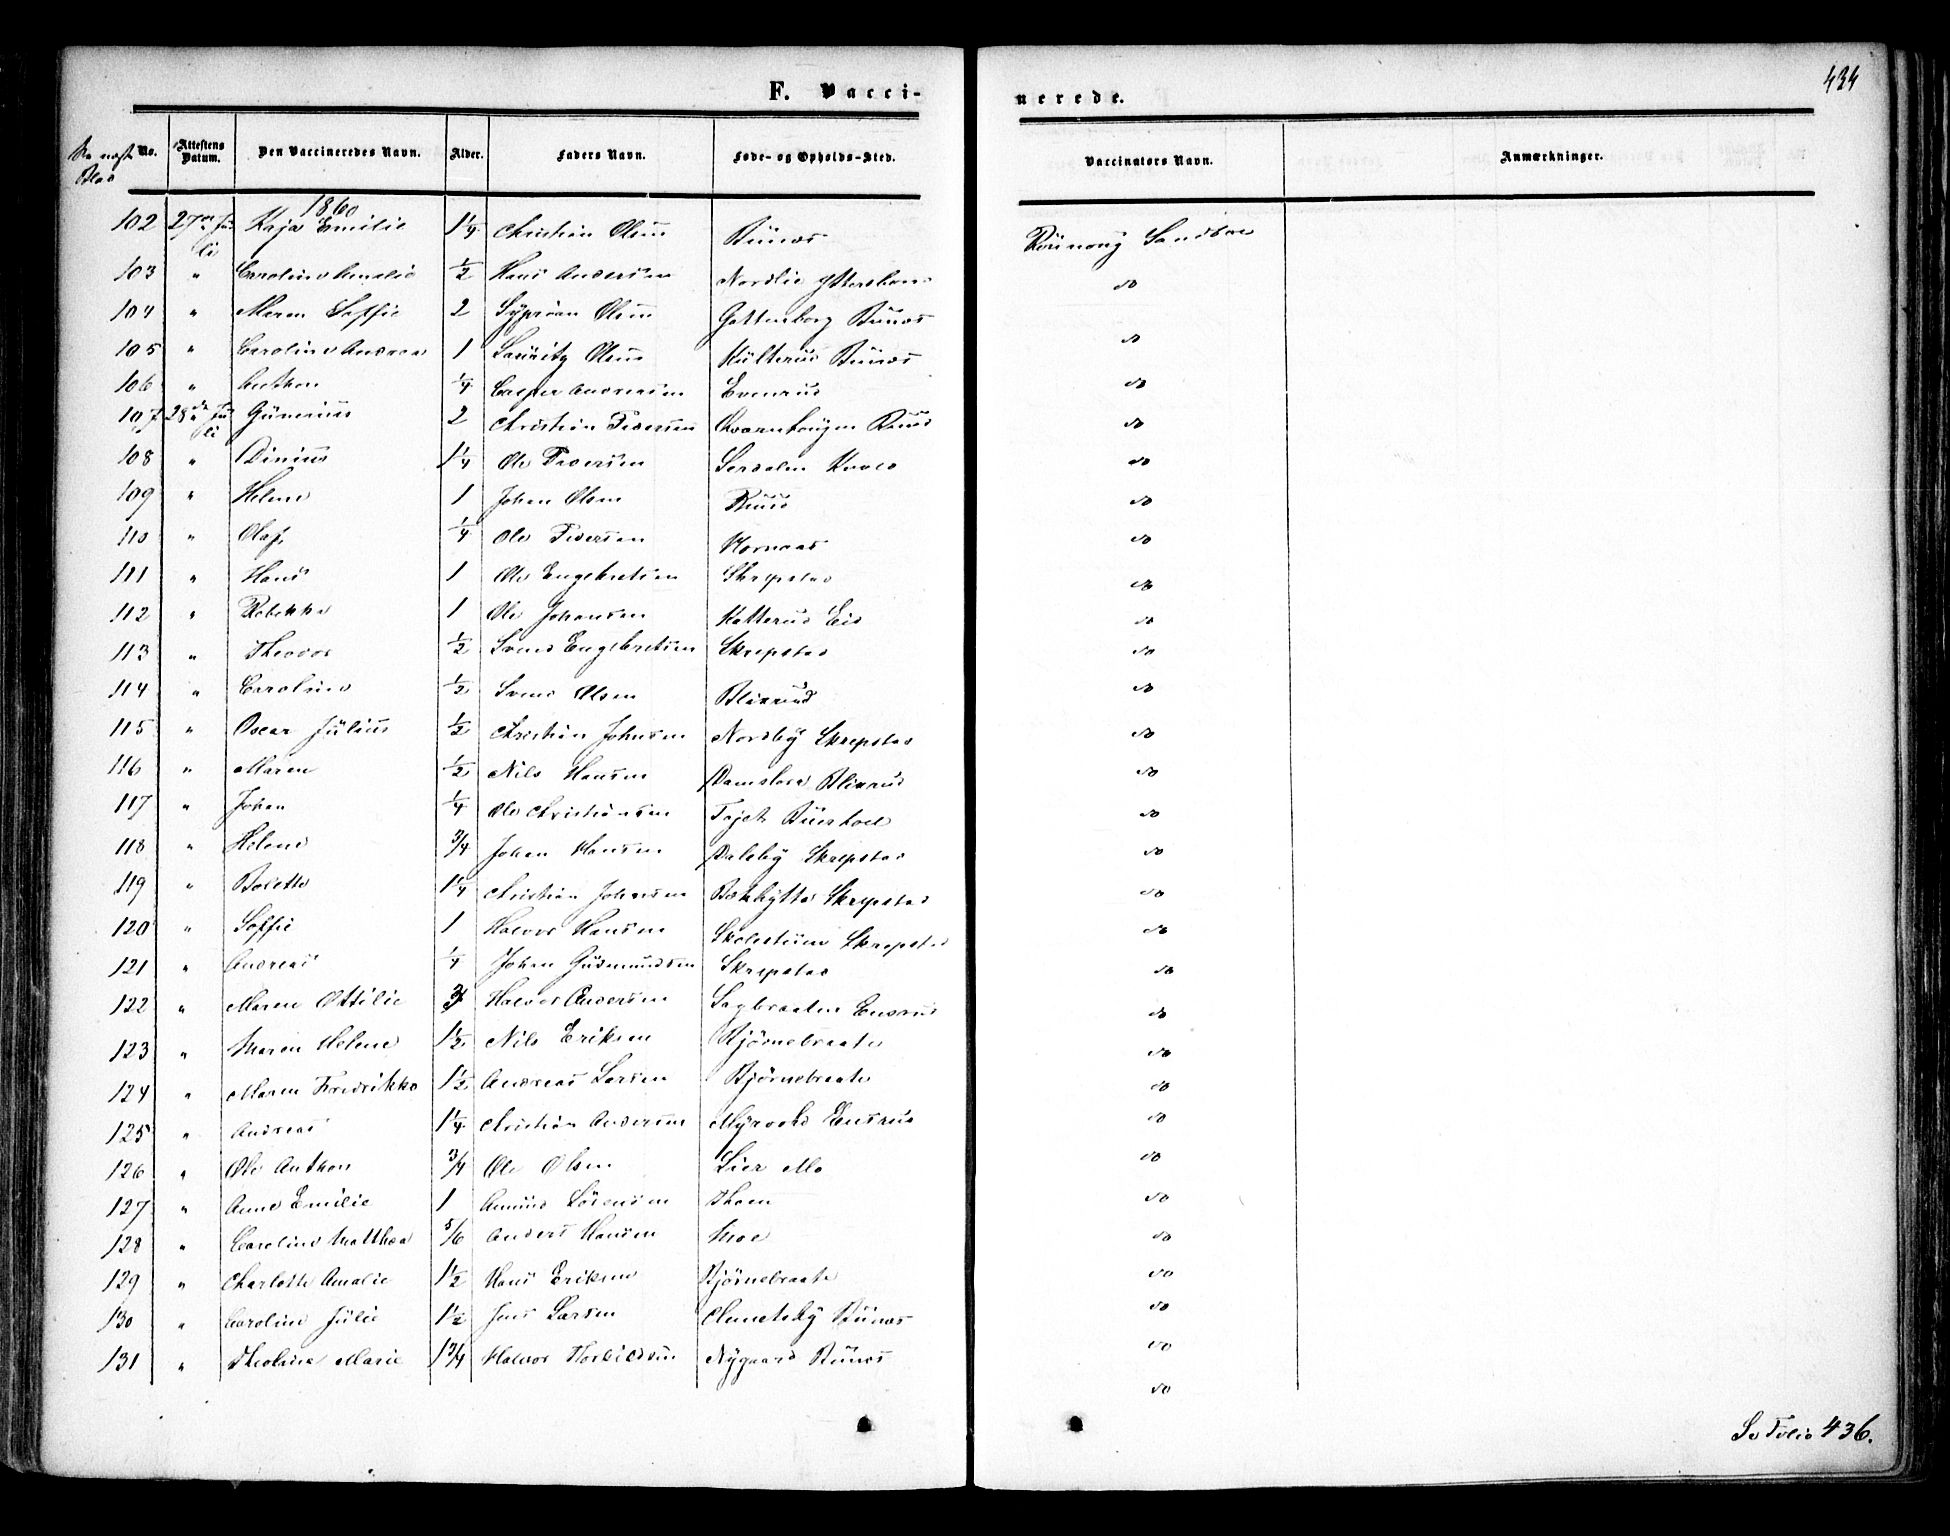 434
F. Vacci-
nerede.
No. Attestens Datum. Den Vaccineredes Navn. Alder. Faders Navn. Føde- og Opholds-Sted. Vaccinators Navn. Anmærkninger.
1860
102 27 Juli Kaja Emilie 1 1/4 Christian Olsen Sandboe
103 " Caroline Amalie 1/2 Hans Andersen Nordlie do
104 " Maren Soffie 2 Syprian Olsen Gottenborg do
105 " Caroline Andrea 1 Lauritz Olsen Kulterud do
106 " Anthon 1/4 Casper Andersen Evenrud do
107 28 Juli Gunerius 2 Christian Pedersen do
108 " Dinius 1 1/4 Ole Pedersen do
109 " Helene 1 Johan Olsen Ruud do
110 " Olaf 1/4 Ole Pedersen do
111 " Hans 1 Ole Engebretsen Skrepstad do
112 " Rebekka 1 Ole Johansen Katterud Eie do
113 " Theodor 1/2 Svend Engebretsen Skrepstad do
114 " Caroline 1/2 Svend Olsen Blixrud do
115 " Oscar Julius 1/2 Christian Johnsen Nordby Skrepstad do
116 " Maren 1/2 Nils Hansen Blixrud do
117 " Johan 1/4 Ole Christiansen do
118 " Helene 3/4 Johan Hansen Dalsby Skrepstad do
119 " Bolette 1 1/4 Christian Johnsen Bækhytta Skrepstad do
120 " Soffie 1 Halvor Hansen Skrepstad do
121 " Andreas 1/4 Johan Gudmundsen Skrepstad do
122 " Maren Ottilie Halvor Andersen Sagbraaten Ensrud do
123 " Maren Helene 1 1/2 Nils Eriksen Bjørnebraate do
124 " Maren Fredrikke 1 1/2 Andreas Larsen Bjørnebraate do
125 " Andreas 1 1/4 Christian Andersen Ensrud do
126 " Ole Anthon 3/4 Ole Olsen Lier Mo do
127 " Anne Emilie 1 Amund Sørensen do
128 " Caroline Matthea 5/6 Anders Hansen Moe do
129 " Charlotte Amalie 1 1/2 Hans Eriksen Bjørnebraate do
130 " Caroline Julie 1 1/2 Jens Larsen Clemetsby do
131 " Marie 1 3/4 Halvor Nygaard do
Se Folio 436.